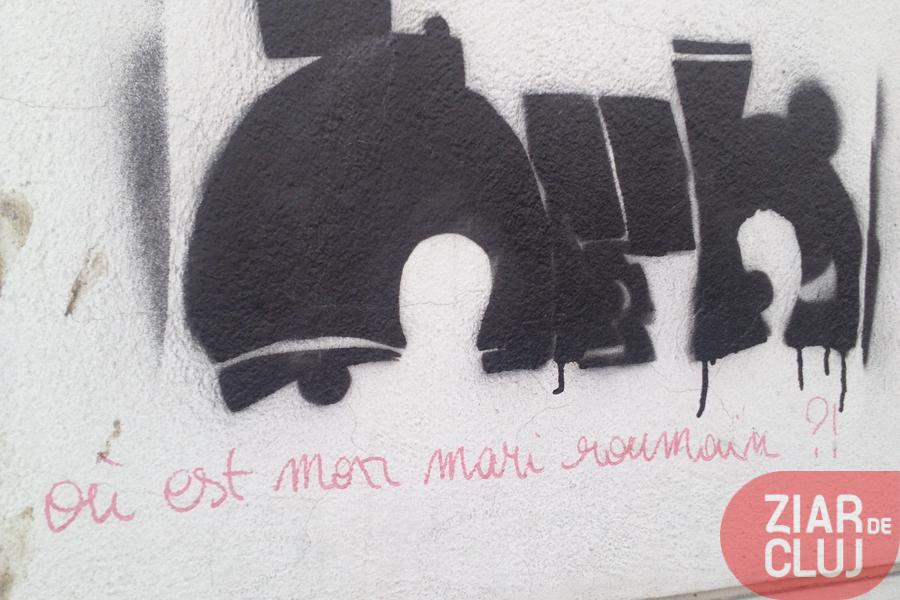 où est mon mari roumain ?!
ZIAR DE
CLUJ